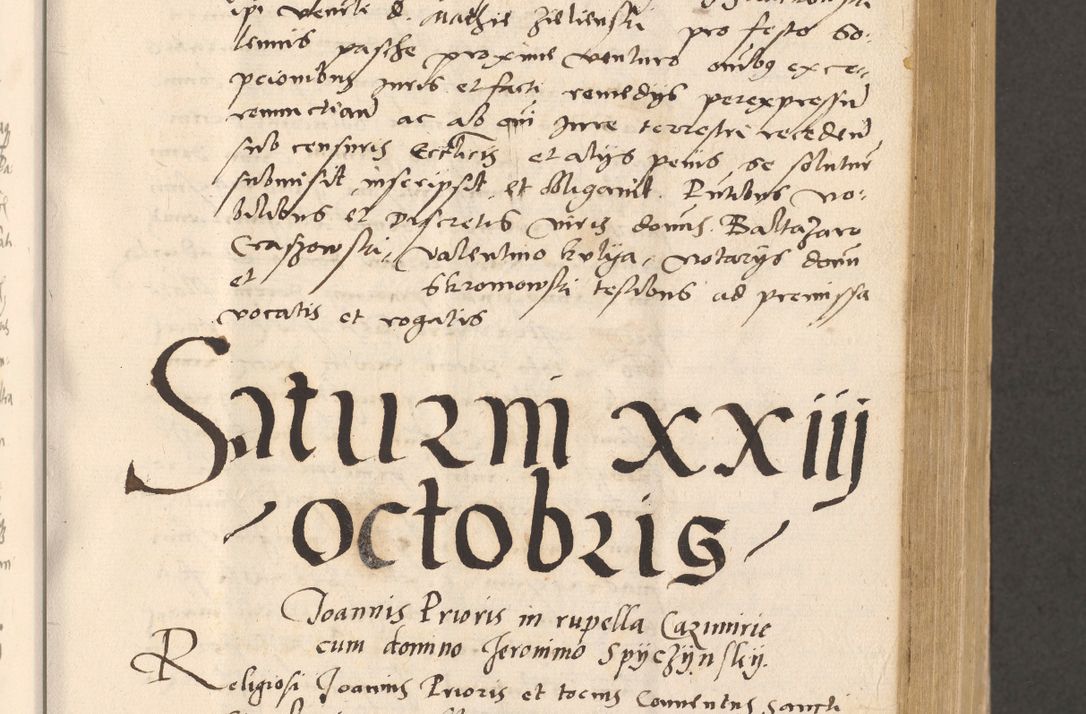 ipi Venerle d. Mathie Zielienski pro festo so-
lennis pasche proxime venturo omibus excep-
pcionibus Juris et facti remedys per expressum
renunctiand ac ab omi Jure terrestri recedend
sub censuris Eccticis et alys penis se soluturum
submisit inscripsit et obligavit. Pntibus no-
bilibus et Discretis viris domis Baltazaro
Craszowski, Valentino Kulya, Notarys domi
et Skromowski testibus ad premissa
vocatis et rogatis
Saturni xxiij
octobris
Joannis Prioris in rupella Cazimirie
cum domino Jeronimo Spyczynsky.
Religiosi Joannis Prioris et tocius Conuentus sancti